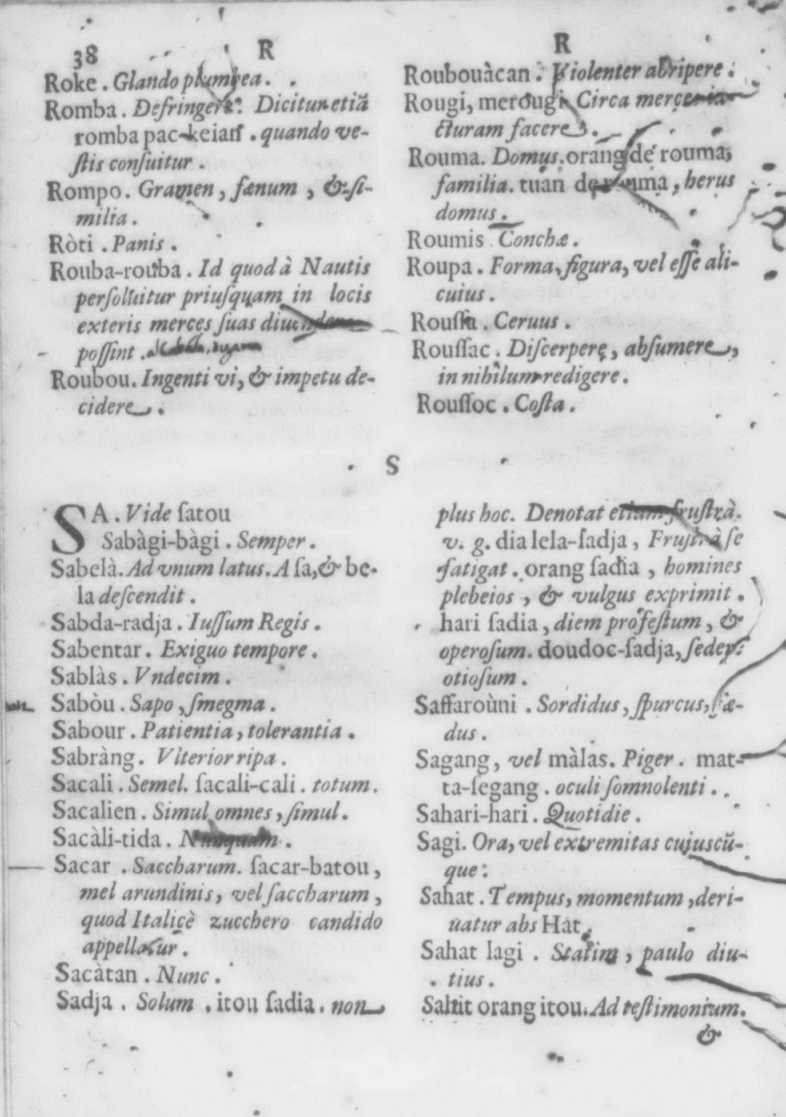 38
R
Roke . Glando plumbea .
Romba . Defringere. Dicitur etiã
romba pac-keian . quando ve-
stis consuitur .
Rompo . Gramen , fænum , & si-
milia .
Ròti . Panis .
Rouba-rouba . Id quod à Nautis
persoluitur priusquam in locis
exteris merces suas diuendere
possint .
Roubou . Ingenti vi, & impetu de-
cidere .
R
Roubouàcan . Violenter abripere .
Rougi, merougi. Circa merces ia-
cturam facere .
Rouma. Domus. orang de rouma,
familia. tuan de rouma , herus
domus .
Roumis . Conchæ .
Roupa . Forma, figura, vel esse ali-
cuius .
Roussa . Ceruus .
Roussac . Discerpere , absumere ,
in nihilum redigere .
Roussoc . Costa .
S
SA . Vide satou
Sabàgi-bàgi . Semper .
Sabelà. Ad vnum latus. A sa, & be-
la descendit .
Sabda-radja . Iussum Regis .
Sabentar . Exiguo tempore .
Sablàs . Vndecim .
Sabòu . Sapo , smegma .
Sabour . Patientia, tolerantia .
Sabràng . Vlterior ripa .
Sacali . Semel. sacali-cali . totum .
Sacalien . Simul omnes , simul .
Sacàli-tida . Nunquam .
Sacar . Saccharum . sacar-batou ,
mel arundinis , vel saccharum ,
quod Italicè zucchero candido
appellatur .
Sacàtan . Nunc .
Sadja . Solum . itou sadia . non
plus hoc . Denotat etiam frustrà .
v. g. dia lela-sadja , Frustrà se
fatigat . orang sadia , homines
plebeios , & vulgus exprimit .
hari sadia , diem profestum , &
operosum . doudoc-sadja , sedet
otiosum .
Saffaroùni . Sordidus , spurcus , fæ-
dus .
Sagang , vel màlas . Piger . mat-
ta-segang . oculi somnolenti .
Sahari-hari . Quotidie .
Sagi . Ora, vel extremitas cujuscũ-
que .
Sahat . Tempus, momentum , deri-
uatur abs Hat .
Sahat lagi . Statim , paulo diu-
tius .
Sahit orang itou . Ad testimonium .
&